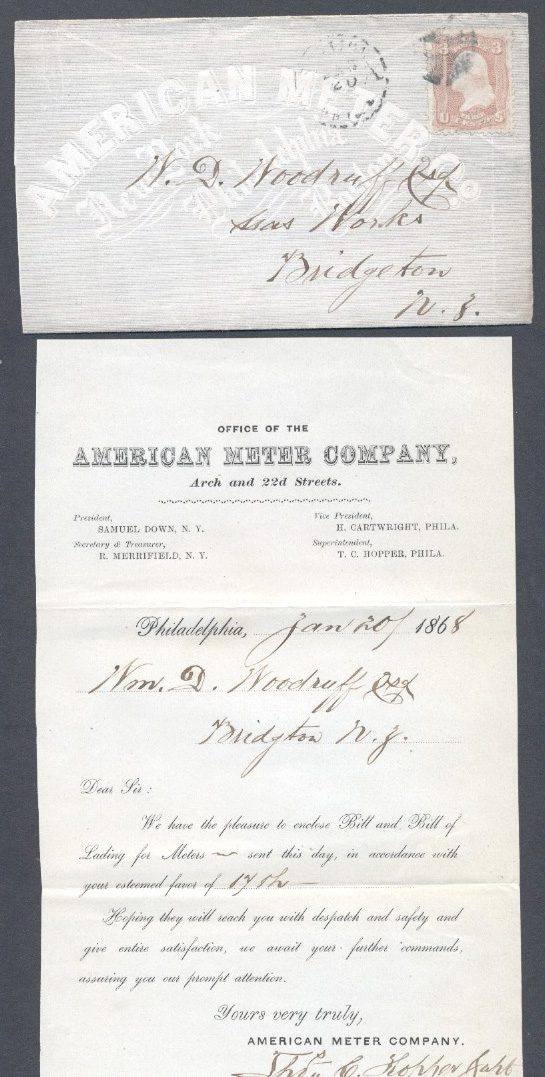 AMERICAN METER Co
New York Philadelphia
20
3 3
U S
W. D. Woodruff Esq
Gas Works
Bridgeton
N. J.
OFFICE OF THE
AMERICAN METER COMPANY,
Arch and 22d Streets.
President, Vice President,
SAMUEL DOWN, N. Y. H. CARTWRIGHT, PHILA.
Secretary & Treasurer, Superintendent,
R. MERRIFIELD, N. Y. T. C. HOPPER, PHILA.
Philadelphia, Jan 20/ 1868
Wm. D. Woodruff Esq
Bridgton N. J.
Dear Sir:
We have the pleasure to enclose Bill and Bill of
Lading for Meters ~ sent this day, in accordance with
your esteemed favor of 17th
Hoping they will reach you with despatch and safety and
give entire satisfaction, we await your further commands,
assuring you our prompt attention.
Yours very truly,
AMERICAN METER COMPANY.
Thos C. Hopper Supt